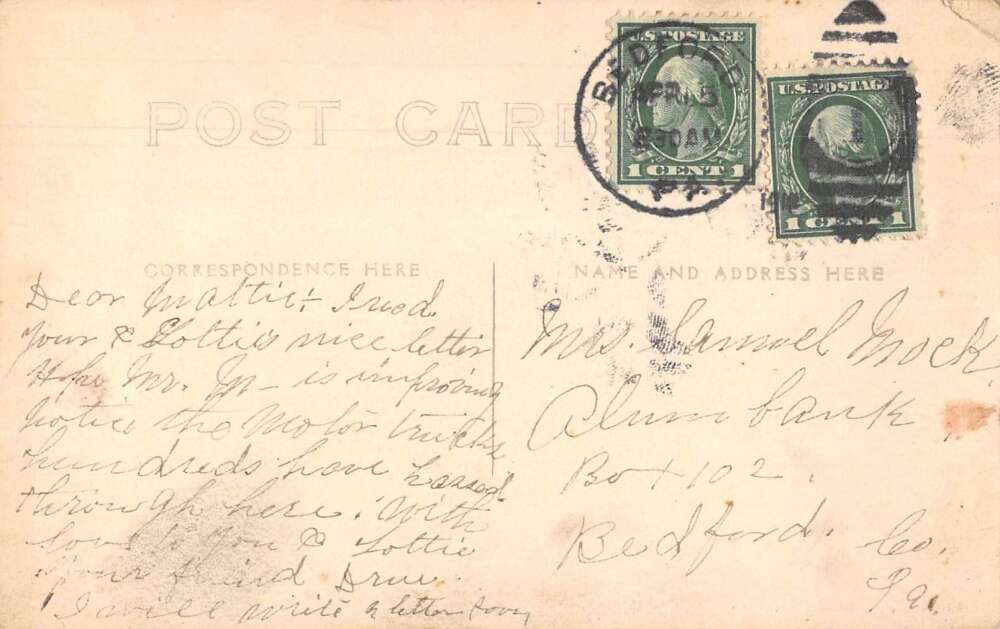 POST CARD
U.S. POSTAGE
1 CENT 1
U.S. POSTAGE
1 CENT 1
BEDFORD
APR 5
830 AM
PA
CORRESPONDENCE HERE
Dear Mattie:- I recd.
your & Lottie's nice letter
Hope Mr. M- is improving
notice the Motor trucks
hundreds have passed
through here. With
love to you & Lottie
Your friend
I will write a letter soon
NAME AND ADDRESS HERE
Mrs. Samuel Mock
Alum bank
Box 102.
Bedford. Co.
Pa.